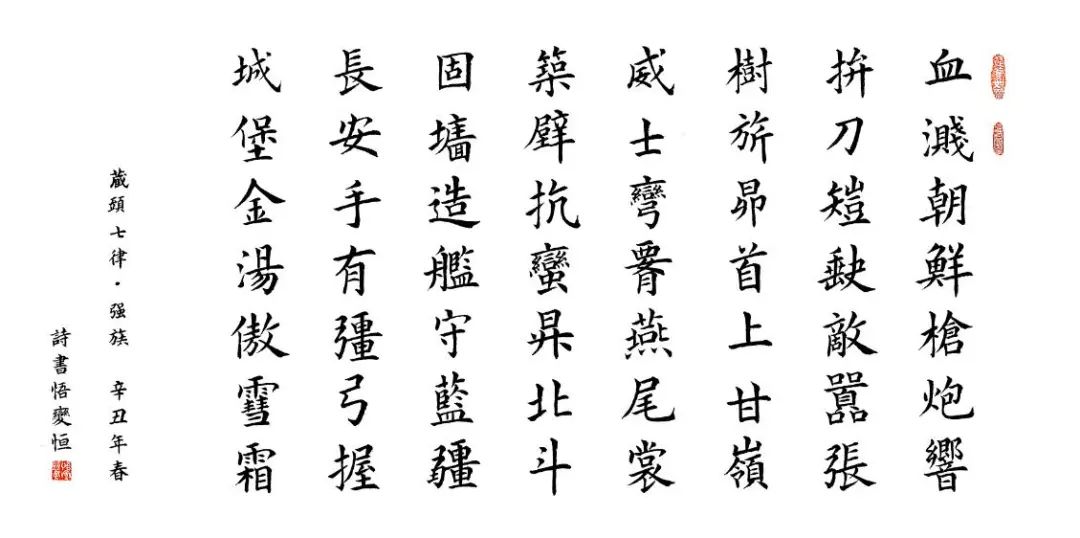 血濺朝鮮槍炮響
拚刀缺敵囂張
樹旂昴首上甘嶺
威士彎燕尾裳
築壁抗蠻昇北斗
固墻造艦守藍疆
長安手有彊弓握
城堡金湯傲䨮霜
蔵頭七律·强族 辛丑年春
詩書悟變恒